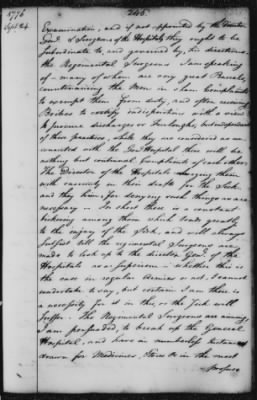 1776
Sept. 24.
246
Examination, and if not appointed by the Director
Genl. & Surgeons of the Hospitals they ought to be
subordinate to, and governed by, his directions.
the Regimental Surgeons I am speaking
of - many of whom are very great Rascals,
countenancing the Men in sham Complaints
to exempt them from duty, and often receiving
Bribes to certify indispositions with a view
to procure discharges or Furloughs, but independent
of these practices, while they are considered as un-
connected with the Genl. Hospital there will be
nothing but continual Complaints of each other:
The Director of the Hospitals charging them
with enormity in their drafts for the Sick
and they him, for denying such things as are
necessary - In short there is a constant
bickering among them which tends greatly
to the injury of the Sick, and will always
subsist till the regimental Surgeons are
made to look up to the director Genl. of the
Hospitals as a Superior - whether this is
the case in regular Armies or not, I cannot
undertake to say, but certain I am there is
a necessity for it in this, or the Sick will
suffer - The Regimental Surgeons are aiming,
I am persuaded, to break up the General
Hospital, and have in numberless instances
drawn for Medicines, Stores &c in the most
profuse